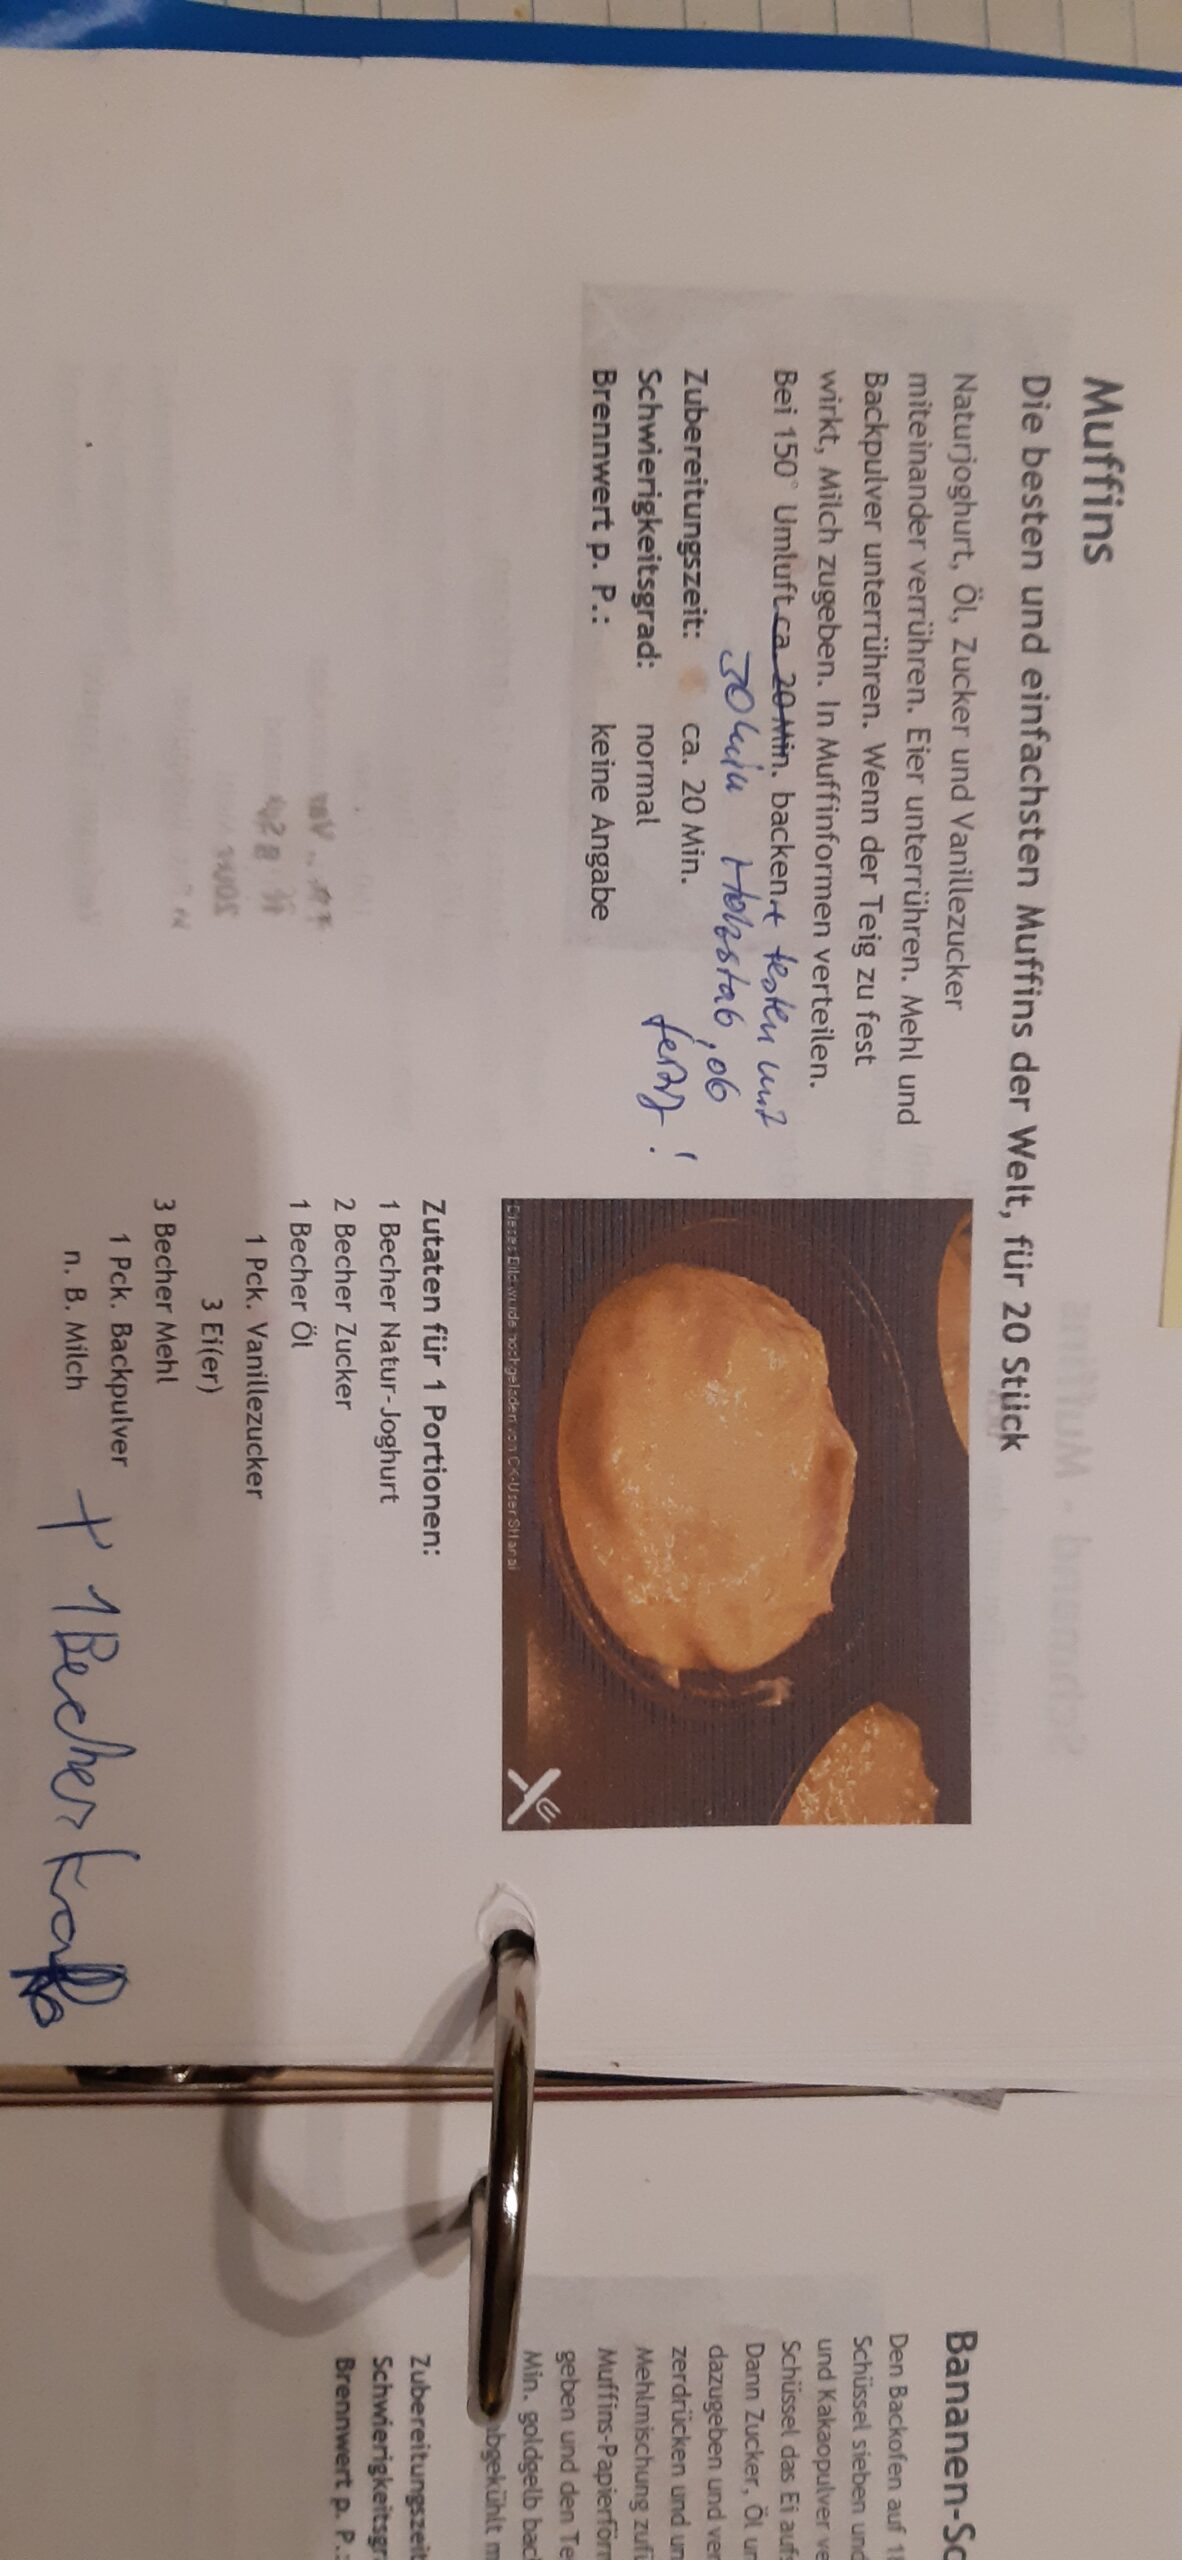 Muffins
Die besten und einfachsten Muffins der Welt, für 20 Stück
Naturjoghurt, Öl, Zucker und Vanillezucker
miteinander verrühren. Eier unterrühren. Mehl und
Backpulver unterrühren. Wenn der Teig zu fest
wirkt, Milch zugeben. In Muffinformen verteilen.
Bei 150° Umluft ca. 20 Min. backen. + testen mit
30 min Holzstab, ob
fertig!
Zubereitungszeit: ca. 20 Min.
Schwierigkeitsgrad: normal
Brennwert p. P.: keine Angabe
Dieses Bild wurde hochgeladen von CK-User
Zutaten für 1 Portionen:
1 Becher Natur-Joghurt
2 Becher Zucker
1 Becher Öl
1 Pck. Vanillezucker
3 Ei(er)
3 Becher Mehl
1 Pck. Backpulver
n. B. Milch
+ 1 Becher
Bananen-Sc
Den Backofen auf 18
Schüssel sieben und
und Kakaopulver ve
Schüssel das Ei aufs
Dann Zucker, Öl un
dazugeben und ver
zerdrücken und un
Mehlmischung zufü
Muffins-Papierförm
geben und den Te
Min. goldgelb bac
abgekühlt m
Zubereitungszeit
Schwierigkeitsgr
Brennwert p. P.: